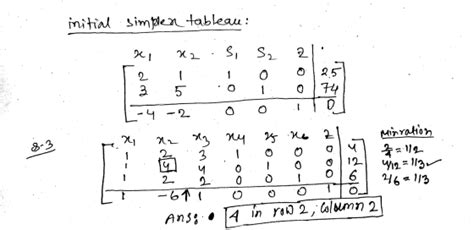 initial simplex tableau:
x1 x2 S1 S2 Z
2 1 1 0 0 25
3 5 0 1 0 74
-4 -2 0 0 1 0
8.3
x1 x2 x3 x4 x5 x6 Z
1 2 3 1 0 0 0 4
1 4 4 0 1 0 0 12
1 2 2 0 0 1 0 6
1 -6↑ 1 0 0 0 1 0
Minration
2/4 = 1/2
4/12 = 1/3 ✓
2/6 = 1/3
Ans: • 4 in row 2, column 2